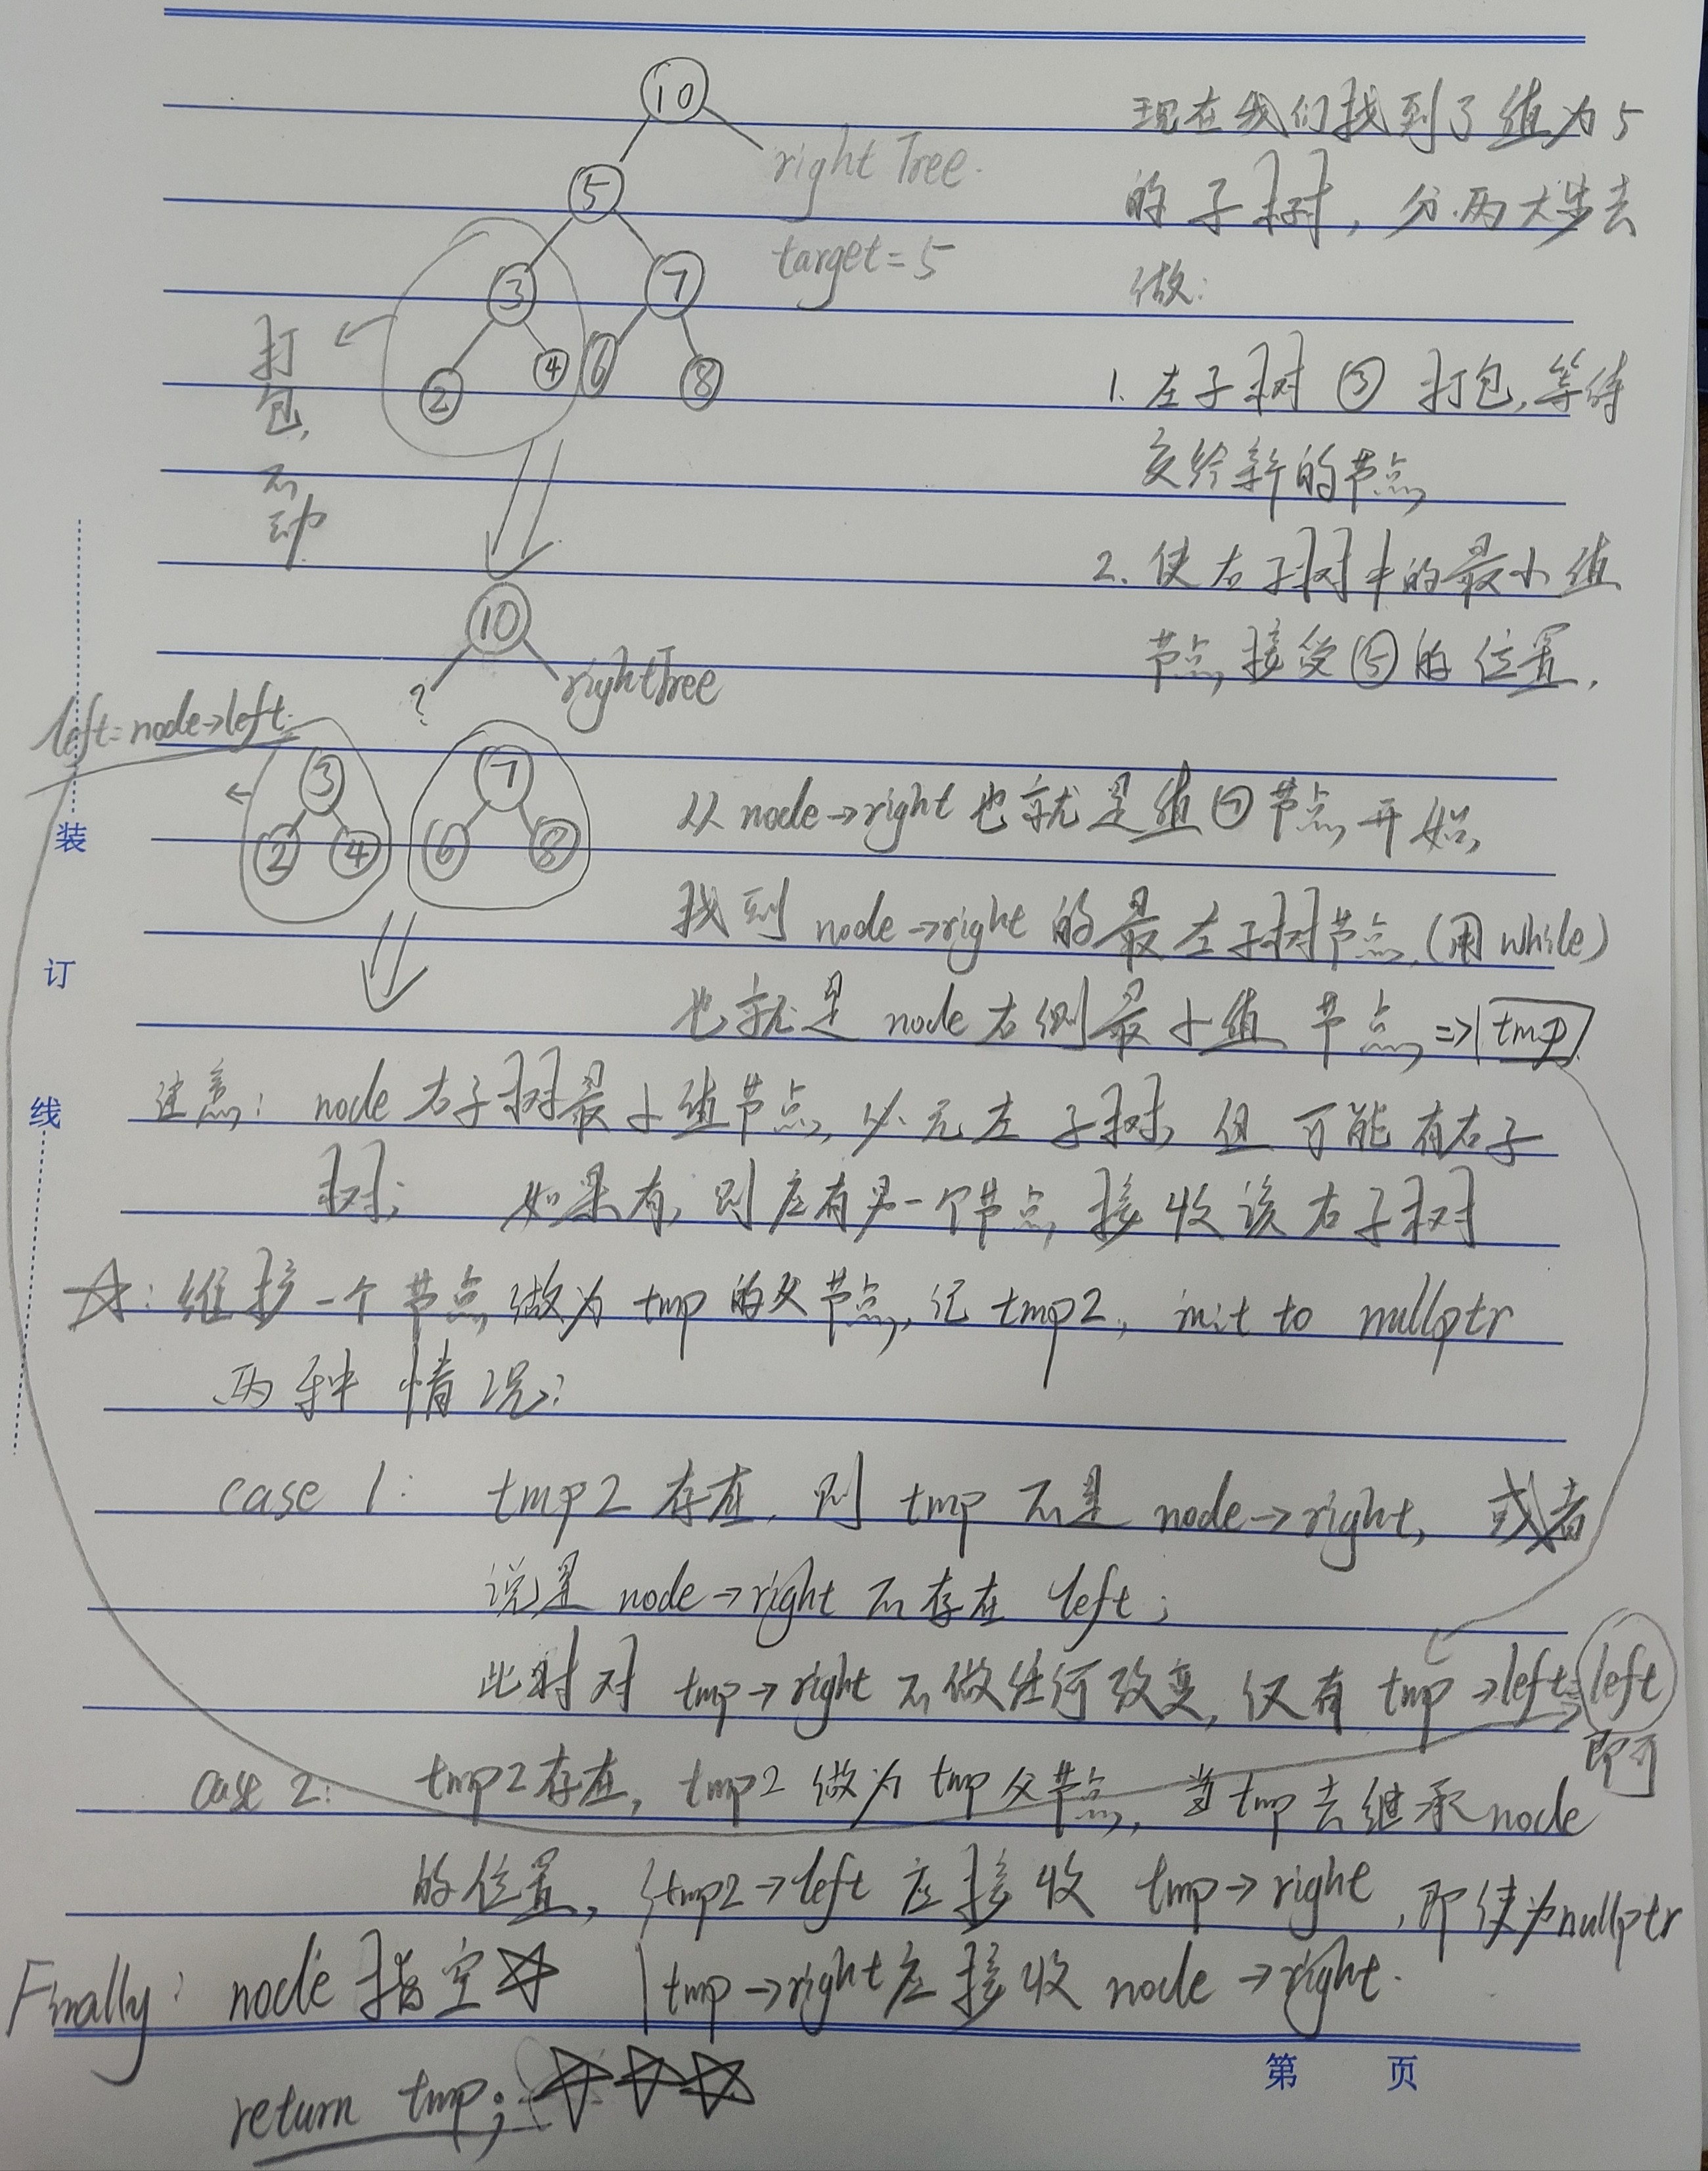 10
right Tree.
5
target=5
3
7
2
4
6
8
打包,不动
现在我们找到了值为5
的子树，分两大步去
做:
1. 左子树③打包,等待
交给新的节点
2. 使右子树中的最小值
节点接受⑤的位置.
10
?
rightTree
left=node→left.
3
2
4
7
6
8
从node→right也就是值⑦节点开始,
找到node→right的最左子树节点.(用while)
也就是node右侧最小值节点=>tmp
注意: node右子树最小值节点,必无左子树,但可能有右子
树; 如果有,则应有另一个节点接收该右子树
☆:维护一个节点做为tmp的父节点,记tmp2, init to nullptr
两种情况:
case 1: tmp2存在,则tmp不是node→right,或者
说是node→right不存在left;
此时对tmp→right不做任何改变,仅有tmp→left=left
即可
case 2: tmp2存在,tmp2做为tmp父节点,当tmp去继承node
的位置, {tmp2→left应接收tmp→right,即使为nullptr
tmp→right应接收node→right.
Finally: node指空☆
return tmp; ☆☆☆
装
订
线
第 页